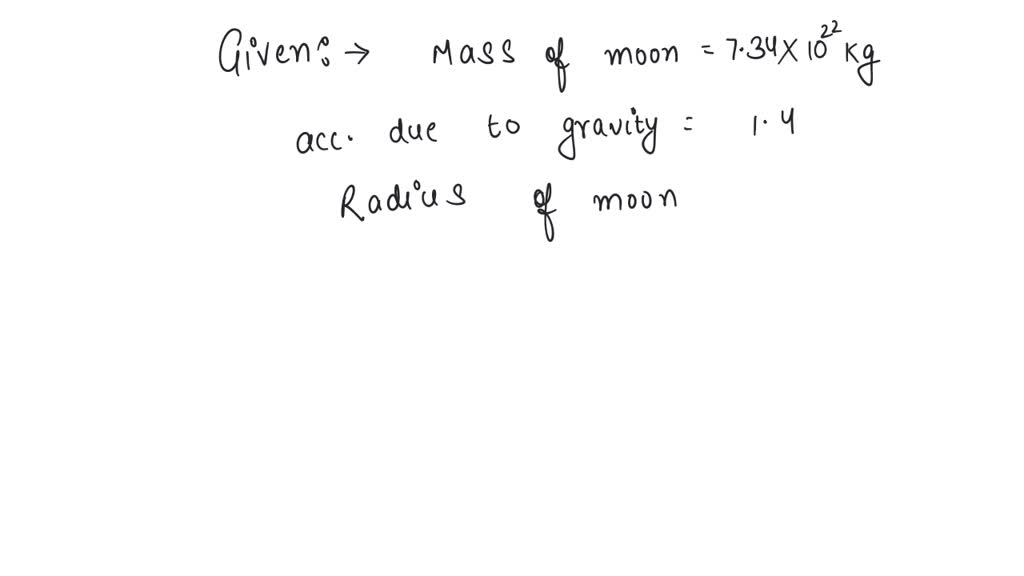 Given:→ Mass of moon = 7.34 × 10²² kg
acc. due to gravity = 1.4
Radius of moon